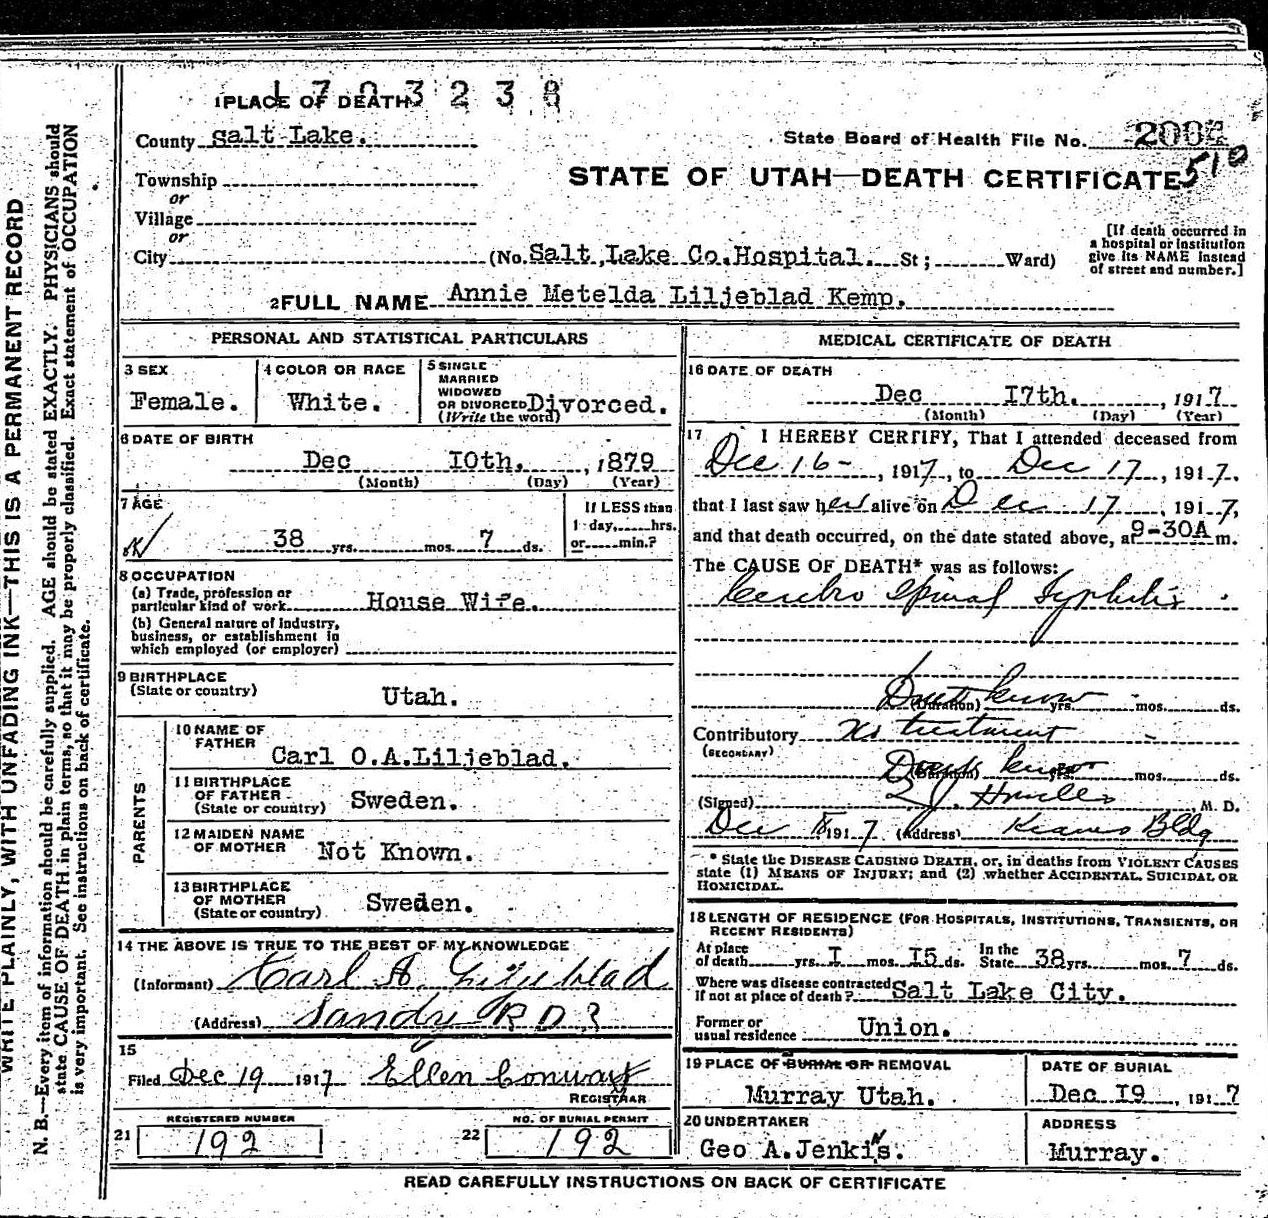 1703238
1 PLACE OF DEATH
County Salt Lake.
State Board of Health File No. 2004
510
Township
or
Village
or
City (No. Salt Lake Co. Hospital. St; Ward)
STATE OF UTAH—DEATH CERTIFICATE
[If death occurred in
a hospital or institution
give its NAME instead
of street and number.]
2 FULL NAME Annie Metelda Liljeblad Kemp.
PERSONAL AND STATISTICAL PARTICULARS
3 SEX
Female.
4 COLOR OR RACE
White.
5 SINGLE
MARRIED
WIDOWED
OR DIVORCED Divorced.
(Write the word)
6 DATE OF BIRTH
Dec I0th. , 1879
(Month) (Day) (Year)
7 AGE
38 yrs. mos. 7 ds.
If LESS than
1 day, hrs.
or min.?
8 OCCUPATION
(a) Trade, profession or
particular kind of work House Wife.
(b) General nature of Industry,
business, or establishment in
which employed (or employer)
9 BIRTHPLACE
(State or country) Utah.
PARENTS
10 NAME OF
FATHER Carl O.A.Liljeblad.
11 BIRTHPLACE
OF FATHER
(State or country) Sweden.
12 MAIDEN NAME
OF MOTHER Not Known.
13 BIRTHPLACE
OF MOTHER
(State or country) Sweden.
14 THE ABOVE IS TRUE TO THE BEST OF MY KNOWLEDGE
(Informant) Carl A. Liljeblad
(Address) Sandy R D 2
15
Filed Dec 19 1917 Ellen Conway
REGISTRAR
REGISTERED NUMBER
21 192
NO. OF BURIAL PERMIT
22 192
MEDICAL CERTIFICATE OF DEATH
16 DATE OF DEATH
Dec I7th. , 1917
(Month) (Day) (Year)
17 I HEREBY CERTIFY, That I attended deceased from
Dec 16 - , 1917, to Dec 17, 1917.
that I last saw her alive on Dec 17, 1917,
and that death occurred, on the date stated above, at 9-30A m.
The CAUSE OF DEATH* was as follows:
Cerebro Spinal Syphilis.
Dont know
(Duration) yrs. mos. ds.
Contributory No treatment
(SECONDARY)
Dont know
(Duration) yrs. mos. ds.
(Signed) , M. D.
Dec 18 1917 (Address) Kearns Bldg
* State the DISEASE CAUSING DEATH, or, in deaths from VIOLENT CAUSES
state (1) MEANS OF INJURY; and (2) whether ACCIDENTAL, SUICIDAL OR
HOMICIDAL.
18 LENGTH OF RESIDENCE (FOR HOSPITALS, INSTITUTIONS, TRANSIENTS, OR
RECENT RESIDENTS)
At place
of death yrs. I mos. I5 ds. In the
State 38 yrs. mos. 7 ds.
Where was disease contracted
if not at place of death? Salt Lake City.
Former or
usual residence Union.
19 PLACE OF BURIAL OR REMOVAL
Murray Utah.
DATE OF BURIAL
Dec I9 , 1917
20 UNDERTAKER
Geo A.Jenkins.
ADDRESS
Murray.
READ CAREFULLY INSTRUCTIONS ON BACK OF CERTIFICATE
WRITE PLAINLY, WITH UNFADING INK—THIS IS A PERMANENT RECORD
N. B.—Every item of information should be carefully supplied. AGE should be stated EXACTLY. PHYSICIANS should
state CAUSE OF DEATH in plain terms, so that it may be properly classified. Exact statement of OCCUPATION
is very important. See instructions on back of certificate.